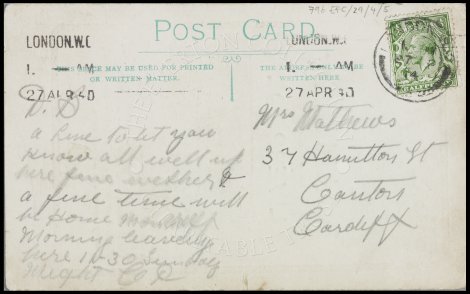 796 EFC/29/4/5
POST CARD
LONDON.W.C
1. — AM
27 APR
THIS SPACE MAY BE USED FOR PRINTED
OR WRITTEN MATTER.
LONDON.W.
1. — AM
27 APR
THE ADDRESS ONLY TO BE
WRITTEN HERE
a line to let you
know all well up
here fine wether &
a fine time will
be Home
Morning leaving
here 11-30 Sunday
Night
Mrs Mathews
37 Hamilton St
Canton
Cardiff